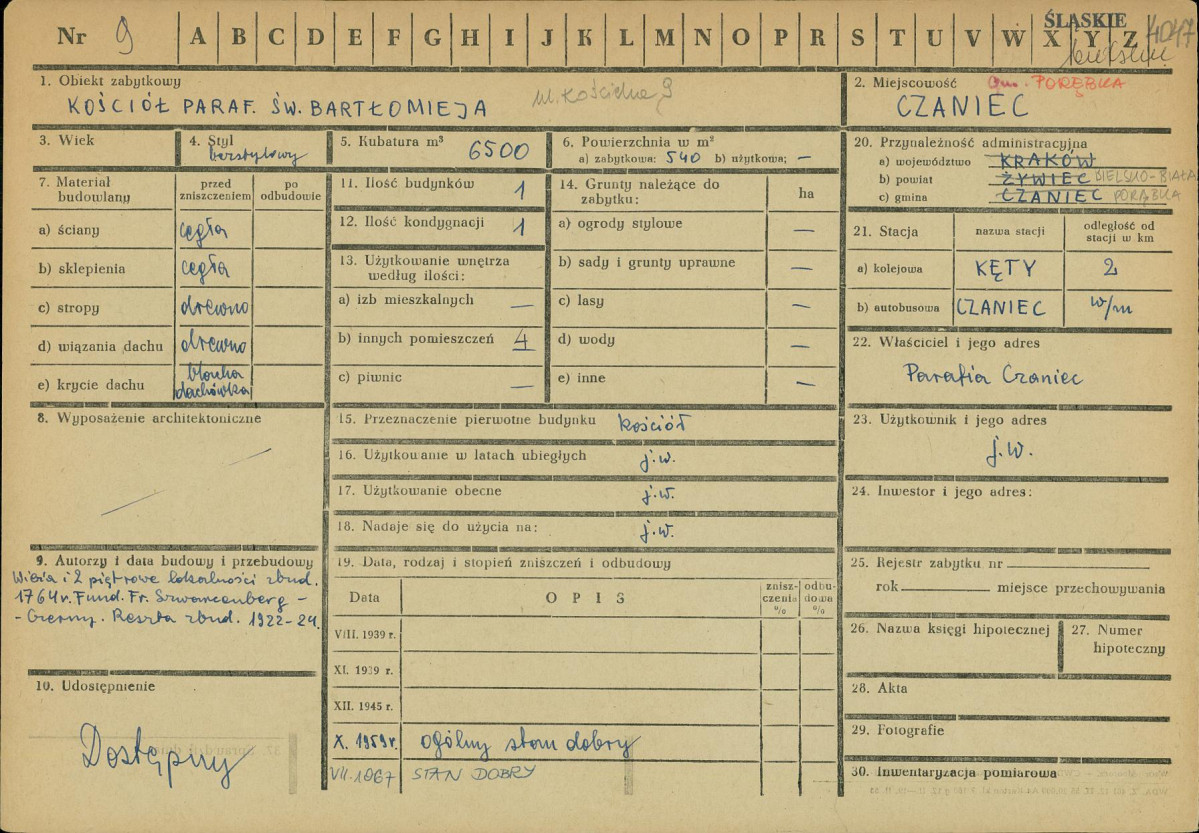 Nr 9 A B C D E F G H I J K L M N O P R S T U V W X Y Z
ŚLĄSKIE 4047
1. Obiekt zabytkowy
KOŚCIÓŁ PARAF. ŚW. BARTŁOMIEJA ul. Kościelna 9
2. Miejscowość gm. PORĘBKA
CZANIEC
3. Wiek
4. Styl
bezstylowy
5. Kubatura m³ 6500
6. Powierzchnia w m²
a) zabytkowa: 540 b) użytkowa; —
7. Materiał budowlany
przed zniszczeniem
po odbudowie
a) ściany cegła
b) sklepienia cegła
c) stropy drewno
d) wiązania dachu drewno
e) krycie dachu blacha dachówka
8. Wyposażenie architektoniczne
—
9. Autorzy i data budowy i przebudowy
Wieża i 2 piętrowe lokalności zbud.
1764 r. Fund. Fr. Szwarcenberg -
- Czerny. Reszta zbud. 1922-24.
10. Udostępnienie
Dostępny
11. Ilość budynków 1
12. Ilość kondygnacji 1
13. Użytkowanie wnętrza
według ilości:
a) izb mieszkalnych —
b) innych pomieszczeń 4
c) piwnic —
14. Grunty należące do
zabytku: ha
a) ogrody stylowe —
b) sady i grunty uprawne —
c) lasy —
d) wody —
e) inne —
15. Przeznaczenie pierwotne budynku kościół
16. Użytkowanie w latach ubiegłych j.w.
17. Użytkowanie obecne j.w.
18. Nadaje się do użycia na: j.w.
19. Data, rodzaj i stopień zniszczeń i odbudowy
Data OPIS zniszczenia % odbudowa %
VIII. 1939 r.
XI. 1939 r.
XII. 1945 r.
X. 1959 r. ogólny stan dobry
VII. 1967 STAN DOBRY
20. Przynależność administracyjna
a) województwo KRAKÓW
b) powiat ŻYWIEC BIELSKO-BIAŁA
c) gmina CZANIEC PORĄBKA
21. Stacja nazwa stacji odległość od stacji w km
a) kolejowa KĘTY 2
b) autobusowa CZANIEC w/m
22. Właściciel i jego adres
Parafia Czaniec
23. Użytkownik i jego adres
j.w.
24. Inwestor i jego adres:
25. Rejestr zabytku nr
rok miejsce przechowywania
26. Nazwa księgi hipotecznej
27. Numer
hipoteczny
28. Akta
29. Fotografie
30. Inwentaryzacja pomiarowa